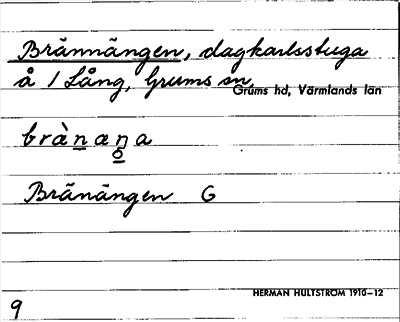 Brännängen, dagkarlsstuga
å 1 Lång, Grums sn
Grums hd, Värmlands län
bràn̲æn̥̲a
Bränängen G
HERMAN HULTSTRÖM 1910–12
9